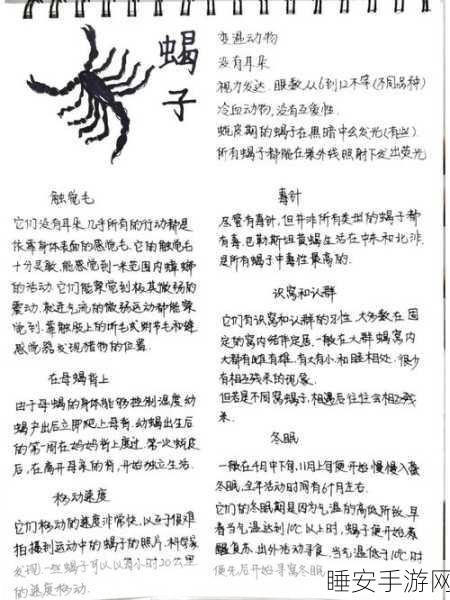 蝎子
变温动物
没有耳朵
视力发达.眼数从6到12不等(不同品种)
冷血动物,没有互爱性.
蜕皮期的蝎子在黑暗中会发光
所有蝎子都能在紫外线照射下发出荧光
触觉毛
它们没有耳朵,几乎所有的行动都是
依靠身体表面的感觉毛.它的触觉毛
十分灵敏,能感觉到一米范围内蟑螂
的活动.它们能察觉到极其微弱的
震动,就连气流的微弱运动都能察
觉到.靠触肢上的听毛或跗节毛和缝
感觉器发现猎物的位置.
在母蝎背上
由于母蝎的身体能够控制温度,幼
蝎产出后立即爬上母背,幼蝎出生后
的第一周在妈妈背上度过.第一次蜕皮
后,在离开母亲的背,开始独立生活.
移动速度
它们移动的速度非常快,以至于很难
拍摄到运动中的蝎子的照片.科学家
发现,一些蝎子可以以每小时20公里
的速度移动.
毒针
尽管有毒针,但并非所有类型的蝎子都
有毒.巴勒斯坦黄蝎生活在中东和北非.
是所有蝎子中毒性最高的.
识窝和认群
它们有识窝和认群的习性,大多数在固
定的窝内结伴定居.一般在大群蝎窝内
大都有雌有雄,有大有小,和睦相处,很少
有相互残杀的现象.
但若是不同窝蝎子,相遇后往往会相互残
杀.
冬眠
一般在4月中下旬,11月上旬便开始慢慢入蛰
冬眠,全年活动时间有6个月左右.
它们的冬眠期是因为气温的高低所致.早
春当气温达到10℃以上时,蝎子便开始苏
醒复苏.出外活动寻食.当气温低于10℃时
便先后开始寻窝冬眠.
睡安手游网